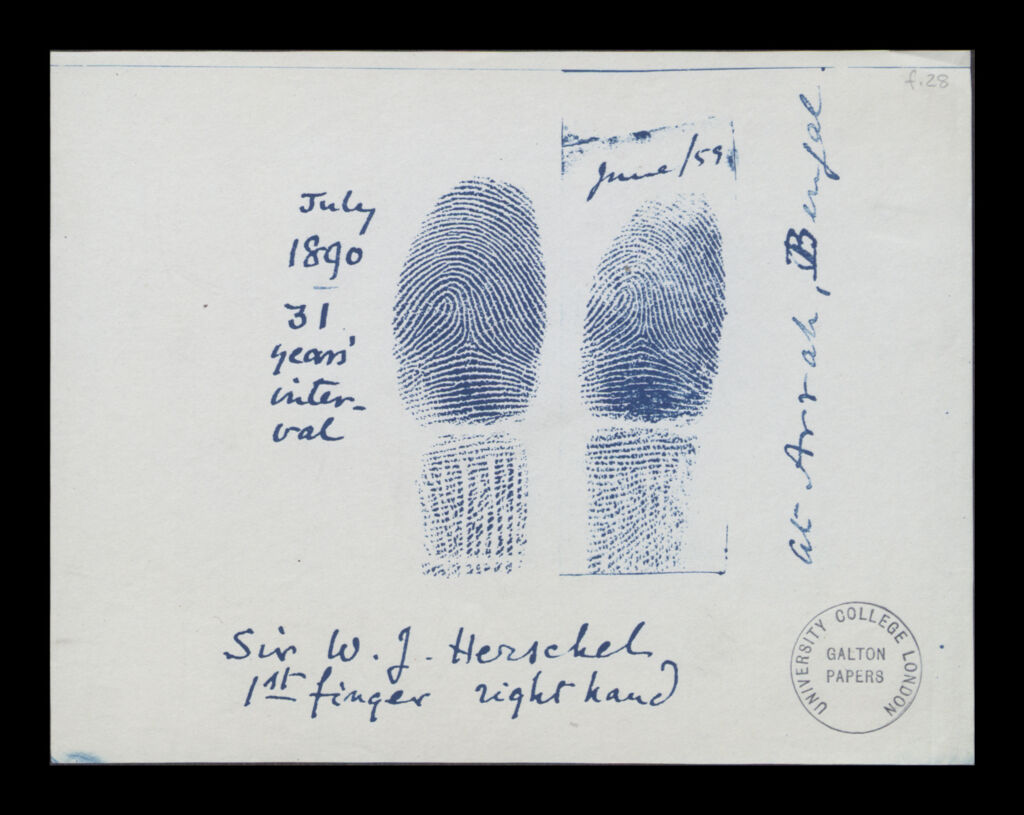 f.28
June/59
July
1890
31
years'
inter-
val
At Arrah, Bengal
Sir W. J. Herschel
1st finger right hand
UNIVERSITY COLLEGE LONDON
GALTON
PAPERS